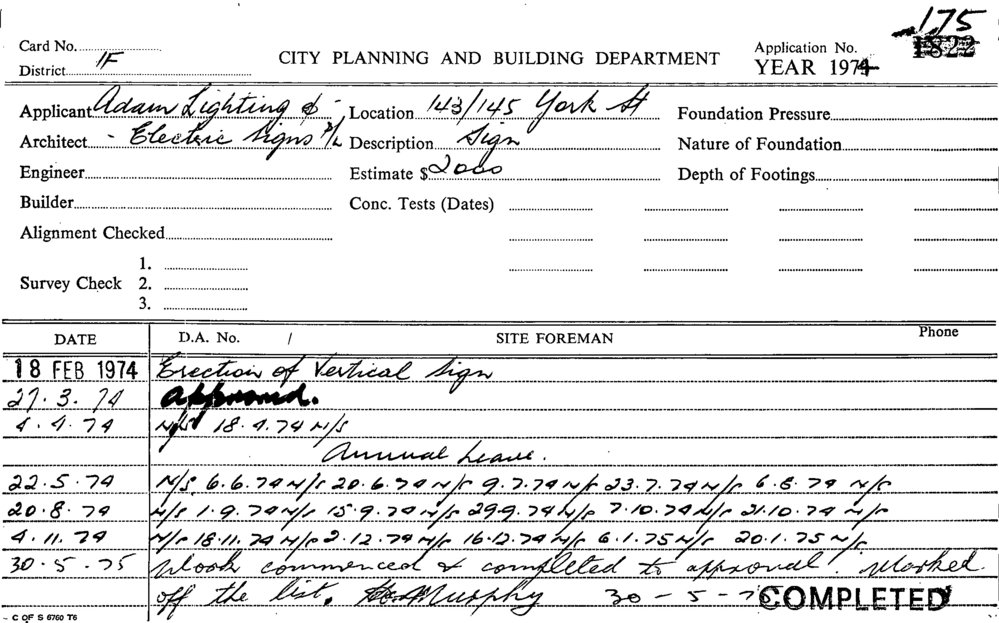 175
Card No. 1822
District 1F CITY PLANNING AND BUILDING DEPARTMENT Application No.
YEAR 1974
Applicant Adam Lighting & Location 143/145 York St Foundation Pressure
Architect - Electric Signs P/L Description Sign Nature of Foundation
Engineer Estimate $2000 Depth of Footings
Builder Conc. Tests (Dates)
Alignment Checked
1.
Survey Check 2.
3.
DATE D.A. No. / SITE FOREMAN Phone
18 FEB 1974 Erection of Vertical Sign
27.3.74 Approved.
4.4.74 N/S 18.4.74 N/S
Annual Leave.
22.5.74 N/S 6.6.74 N/S 20.6.74 N/S 9.7.74 N/S 23.7.74 N/S 6.8.74 N/S
20.8.74 N/S 1.9.74 N/S 15.9.74 N/S 29.9.74 N/S 7.10.74 N/S 21.10.74 N/S
4.11.74 N/S 18.11.74 N/S 2.12.74 N/S 16.12.74 N/S 6.1.75 N/S 20.1.75 N/S
30.5.75 Work commenced & completed to approval. Marked
off the list. Murphy 30-5-75 COMPLETED
C OF S 6760 T6